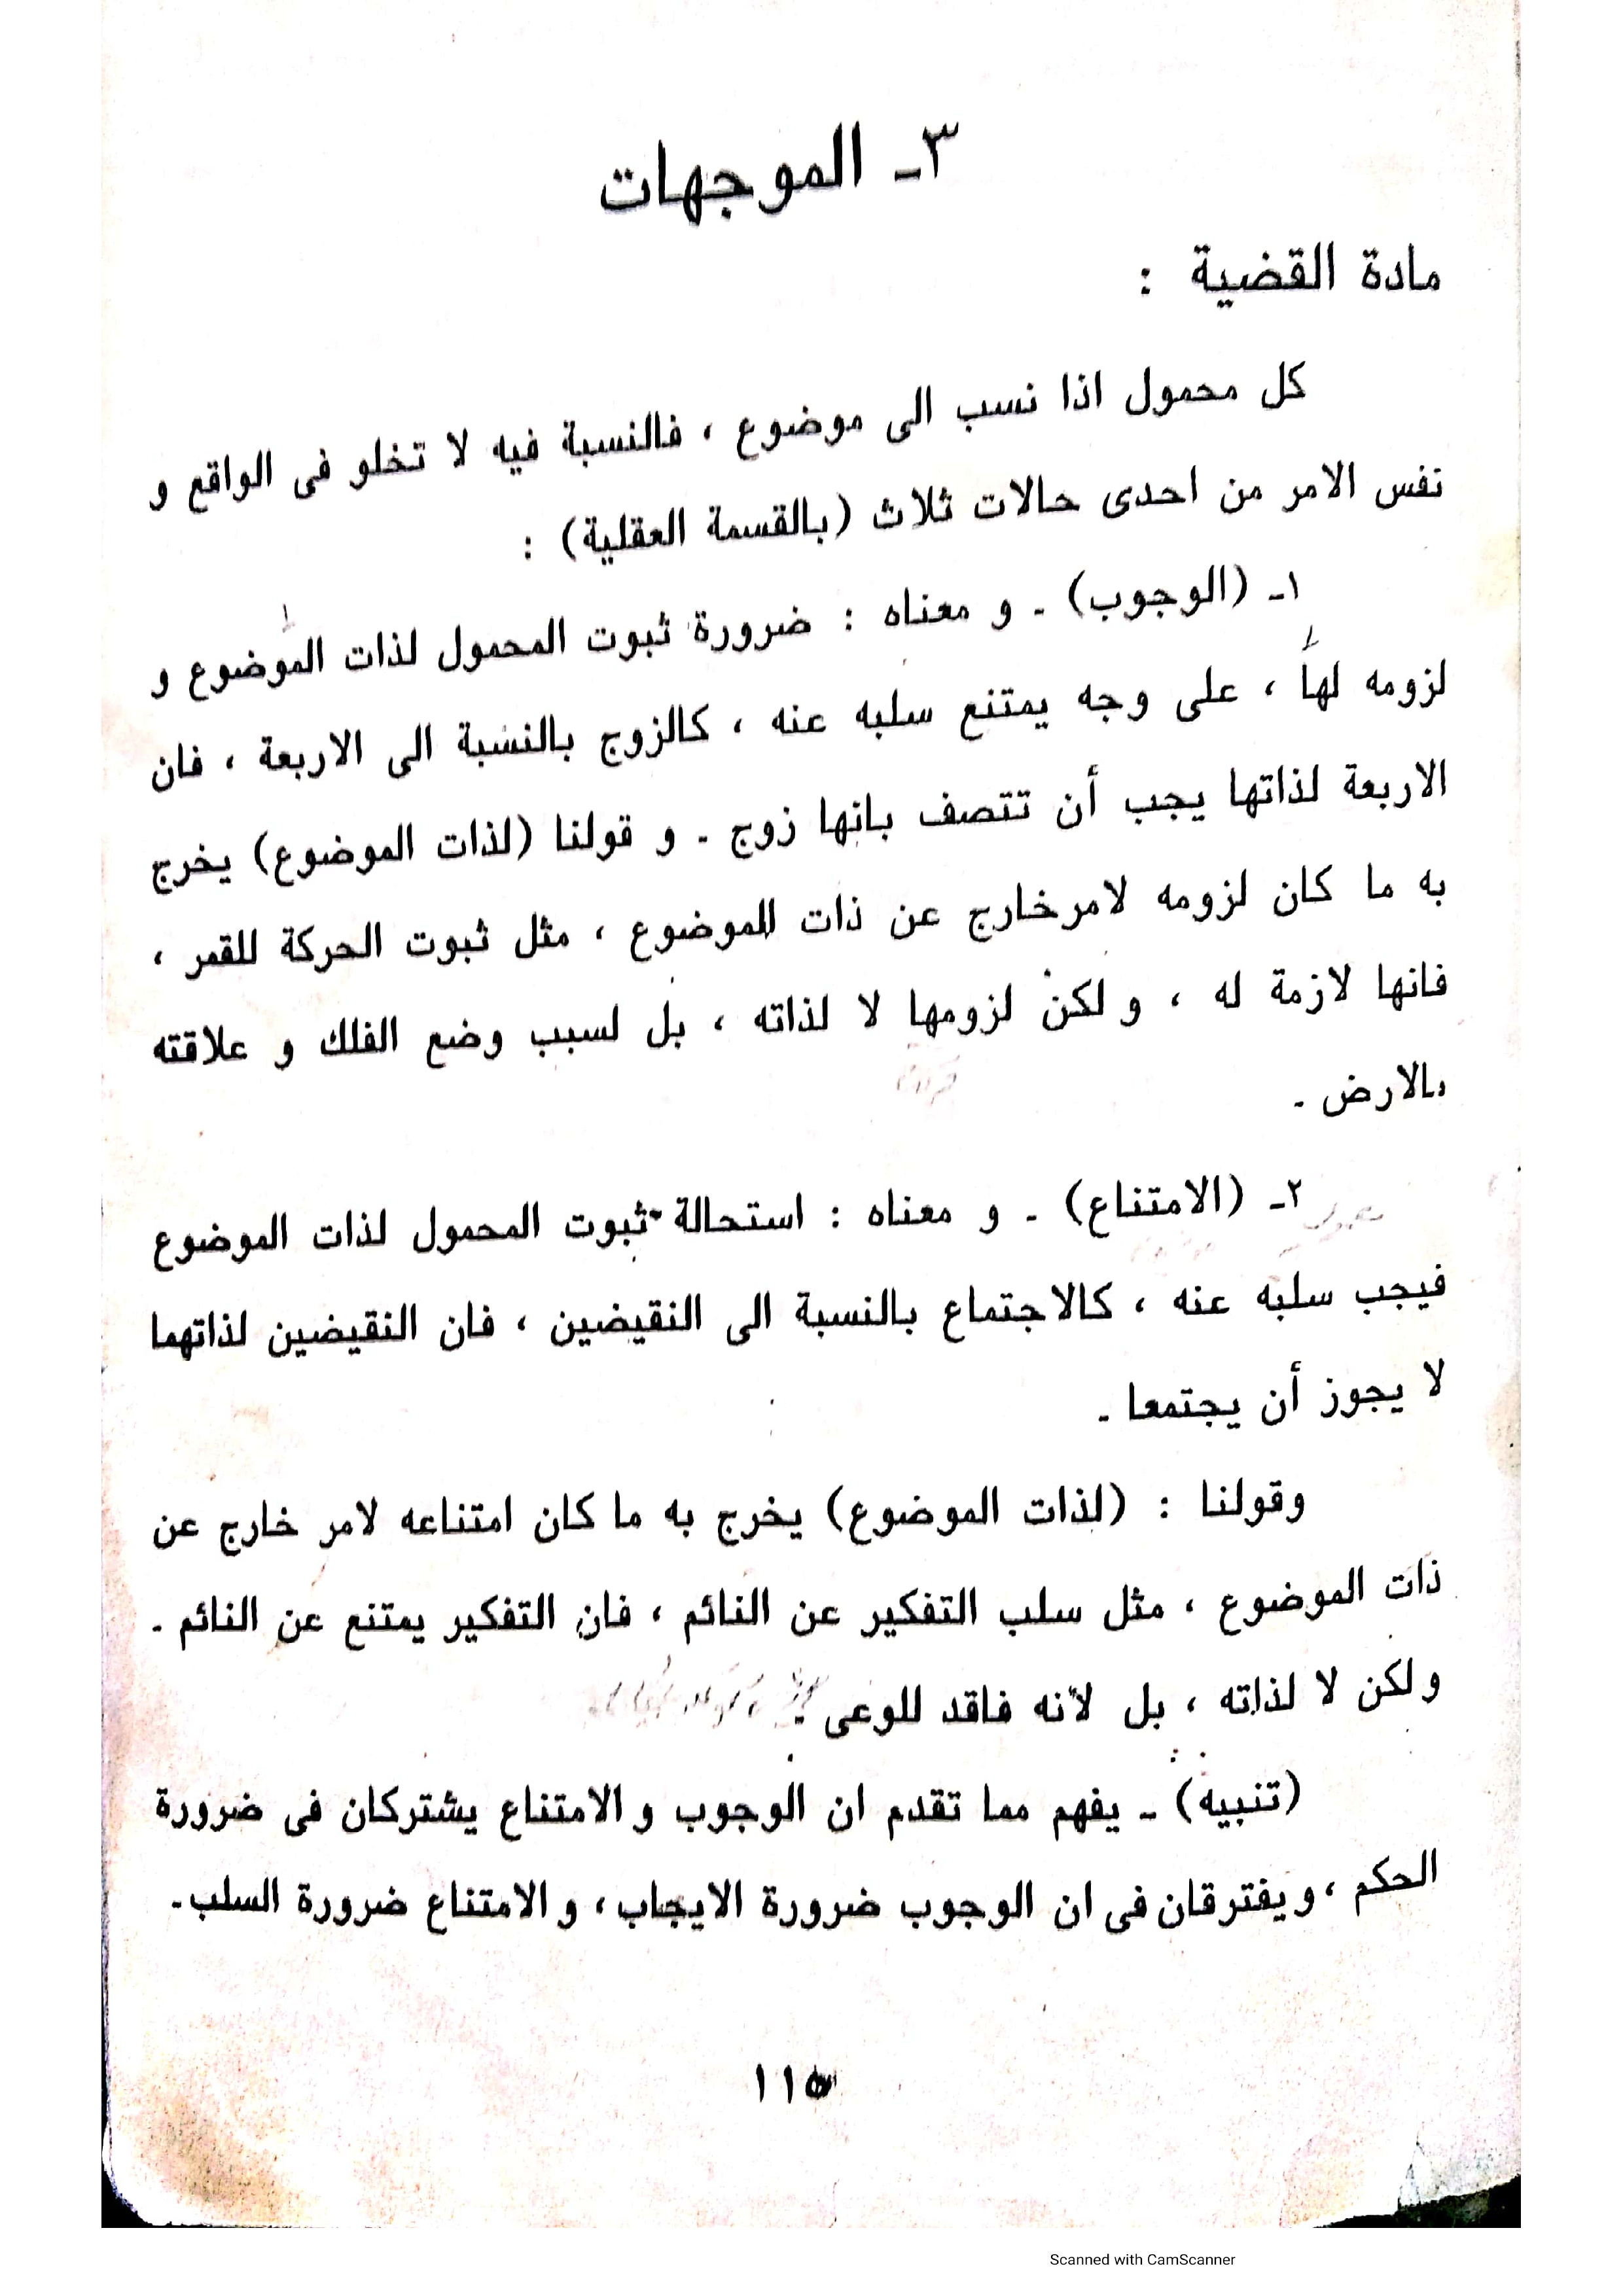 ٣ـ الموجهات
مادة القضية :
كل محمول اذا نسب الى موضوع ، فالنسبة فيه لا تخلو فى الواقع و
نفس الامر من احدى حالات ثلاث (بالقسمة العقلية) :
١ـ (الوجوب) ـ و معناه : ضرورة ثبوت المحمول لذات الموضوع و
لزومه لها ، على وجه يمتنع سلبه عنه ، كالزوج بالنسبة الى الاربعة ، فان
الاربعة لذاتها يجب أن تتصف بانها زوج ـ و قولنا (لذات الموضوع) يخرج
به ما كان لزومه لامر خارج عن ذات الموضوع ، مثل ثبوت الحركة للقمر ،
فانها لازمة له ، و لكن لزومها لا لذاته ، بل لسبب وضع الفلك و علاقته
بالارض ـ
٢ـ (الامتناع) ـ و معناه : استحالة ثبوت المحمول لذات الموضوع
فيجب سلبه عنه ، كالاجتماع بالنسبة الى النقيضين ، فان النقيضين لذاتهما
لا يجوز أن يجتمعا ـ
وقولنا : (لذات الموضوع) يخرج به ما كان امتناعه لامر خارج عن
ذات الموضوع ، مثل سلب التفكير عن النائم ، فان التفكير يمتنع عن النائم ـ
و لكن لا لذاته ، بل لأنه فاقد للوعى ـ
(تنبيه) ـ يفهم مما تقدم ان الوجوب و الامتناع يشتركان فى ضرورة
الحكم ، و يفترقان فى ان الوجوب ضرورة الايجاب ، و الامتناع ضرورة السلب ـ
١١٥
Scanned with CamScanner